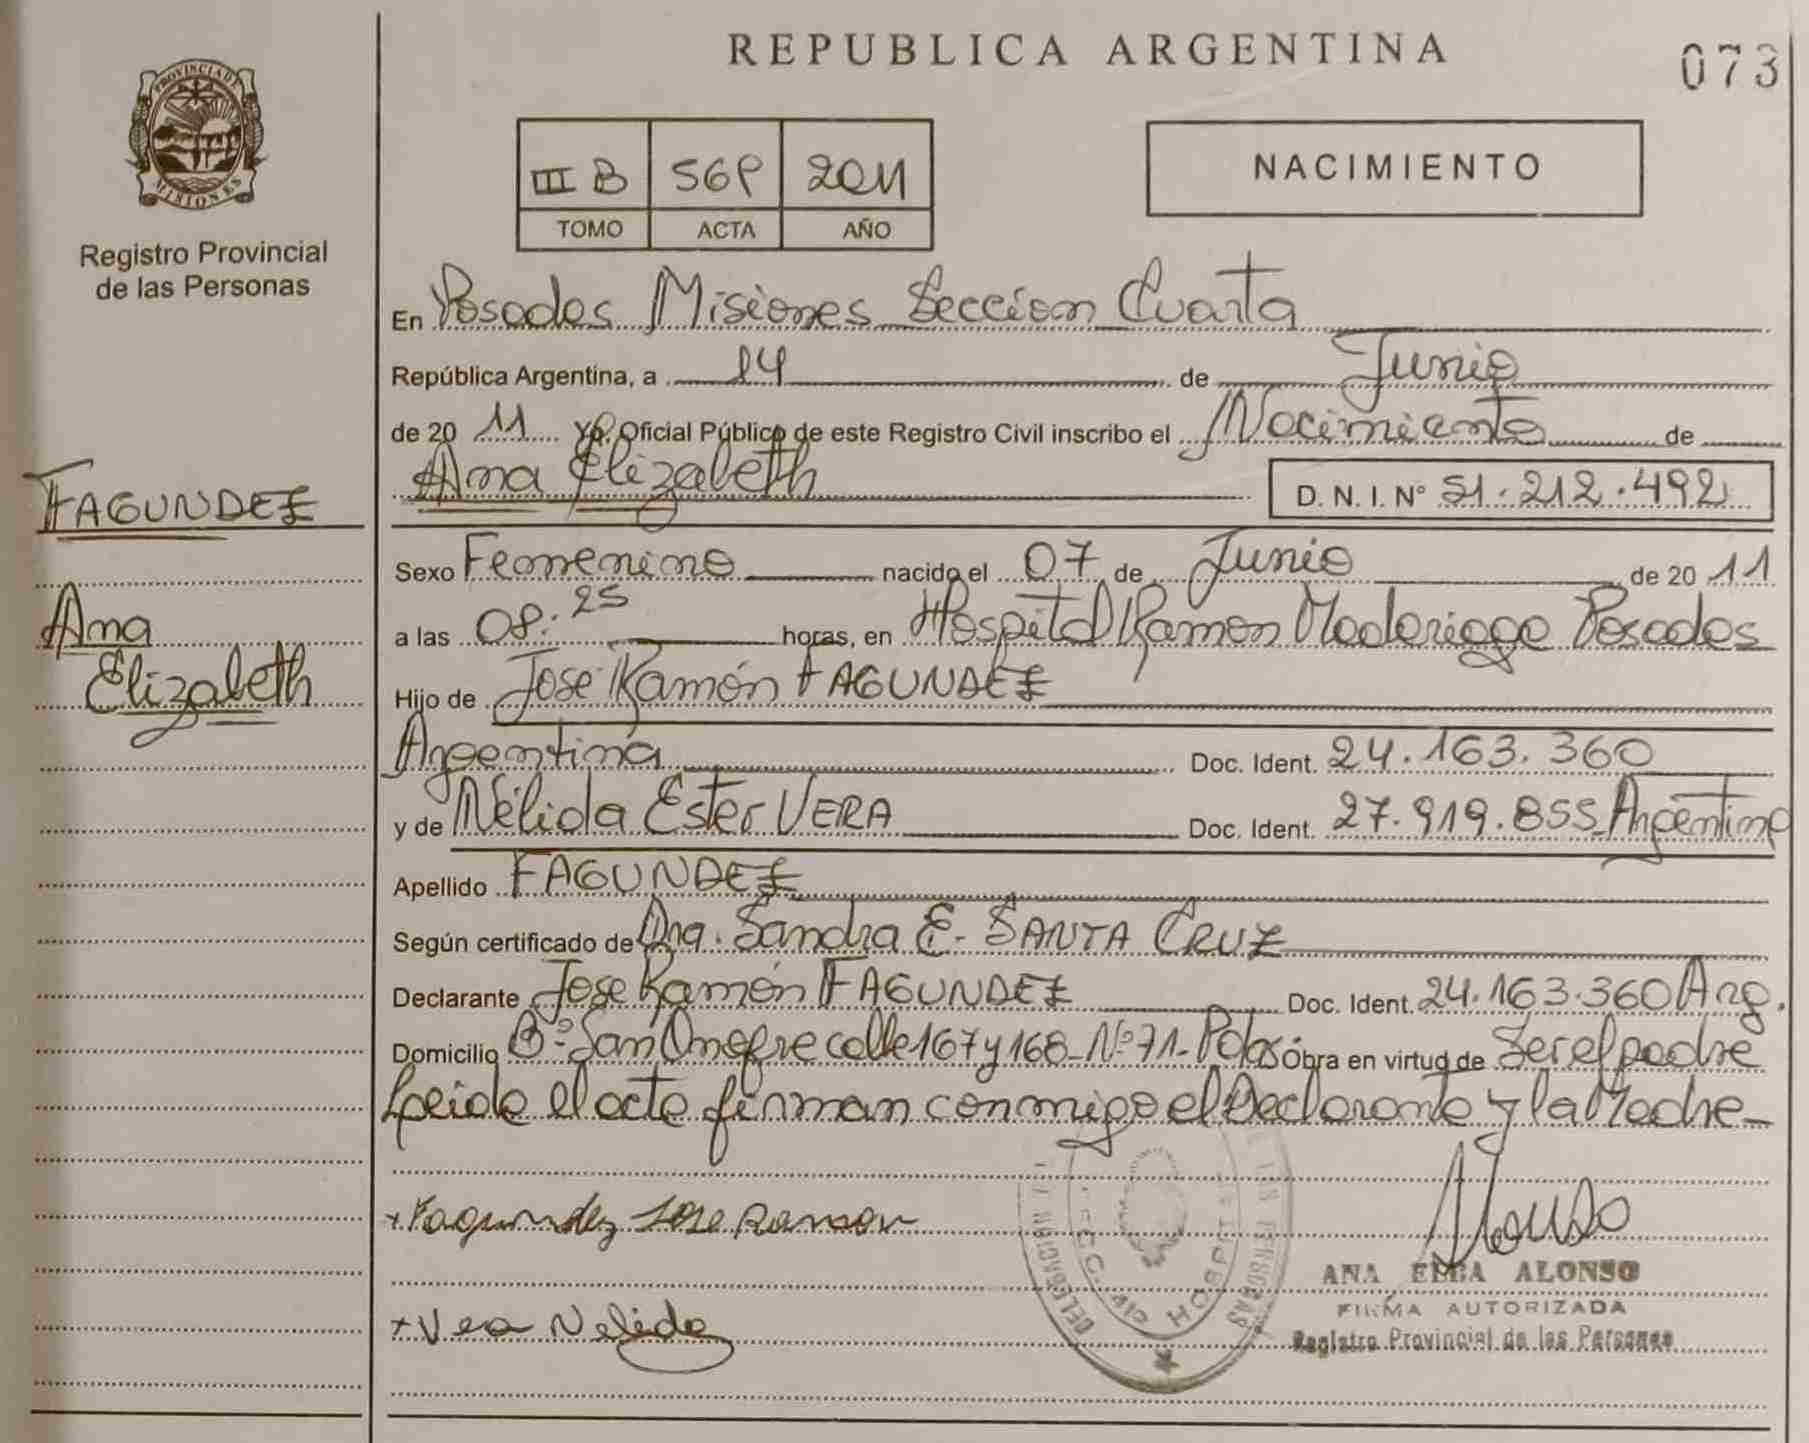 REPUBLICA ARGENTINA
073
PROVINCIA DE
MISIONES
Registro Provincial
de las Personas
III B 568 2011
TOMO ACTA AÑO
NACIMIENTO
En Posadas Misiones Sección Cuarta
República Argentina, a 14 de Junio
de 20 11 Yo, Oficial Público de este Registro Civil inscribo el Nacimiento de
Ana Elizabeth D. N. I. Nº 51.212.492
FAGUNDEZ
Ana
Elizabeth
Sexo Femenino nacido el 07 de Junio de 20 11
a las 08:25 horas, en Hospital Ramon Madariaga Posadas
Hijo de José Ramón FAGUNDEZ
Argentina Doc. Ident. 24.163.360
y de Nélida Ester VERA Doc. Ident. 27.919.855 Argentina
Apellido FAGUNDEZ
Según certificado de Dra. Sandra E. SANTA CRUZ
Declarante José Ramón FAGUNDEZ Doc. Ident. 24.163.360 Arg.
Domicilio Bº San Onofre calle 167 y 168 - Nº 71 - Pdas Obra en virtud de Ser el padre
Leida el acta firman conmigo el Declarante y la Madre -
+ Fagundez Jose Ramon
ANA ELBA ALONSO
FIRMA AUTORIZADA
Registro Provincial de las Personas
+ Vera Nelida
DE LAS PERSONAS
DELEGACION
SECC. 4ta HOSPITAL